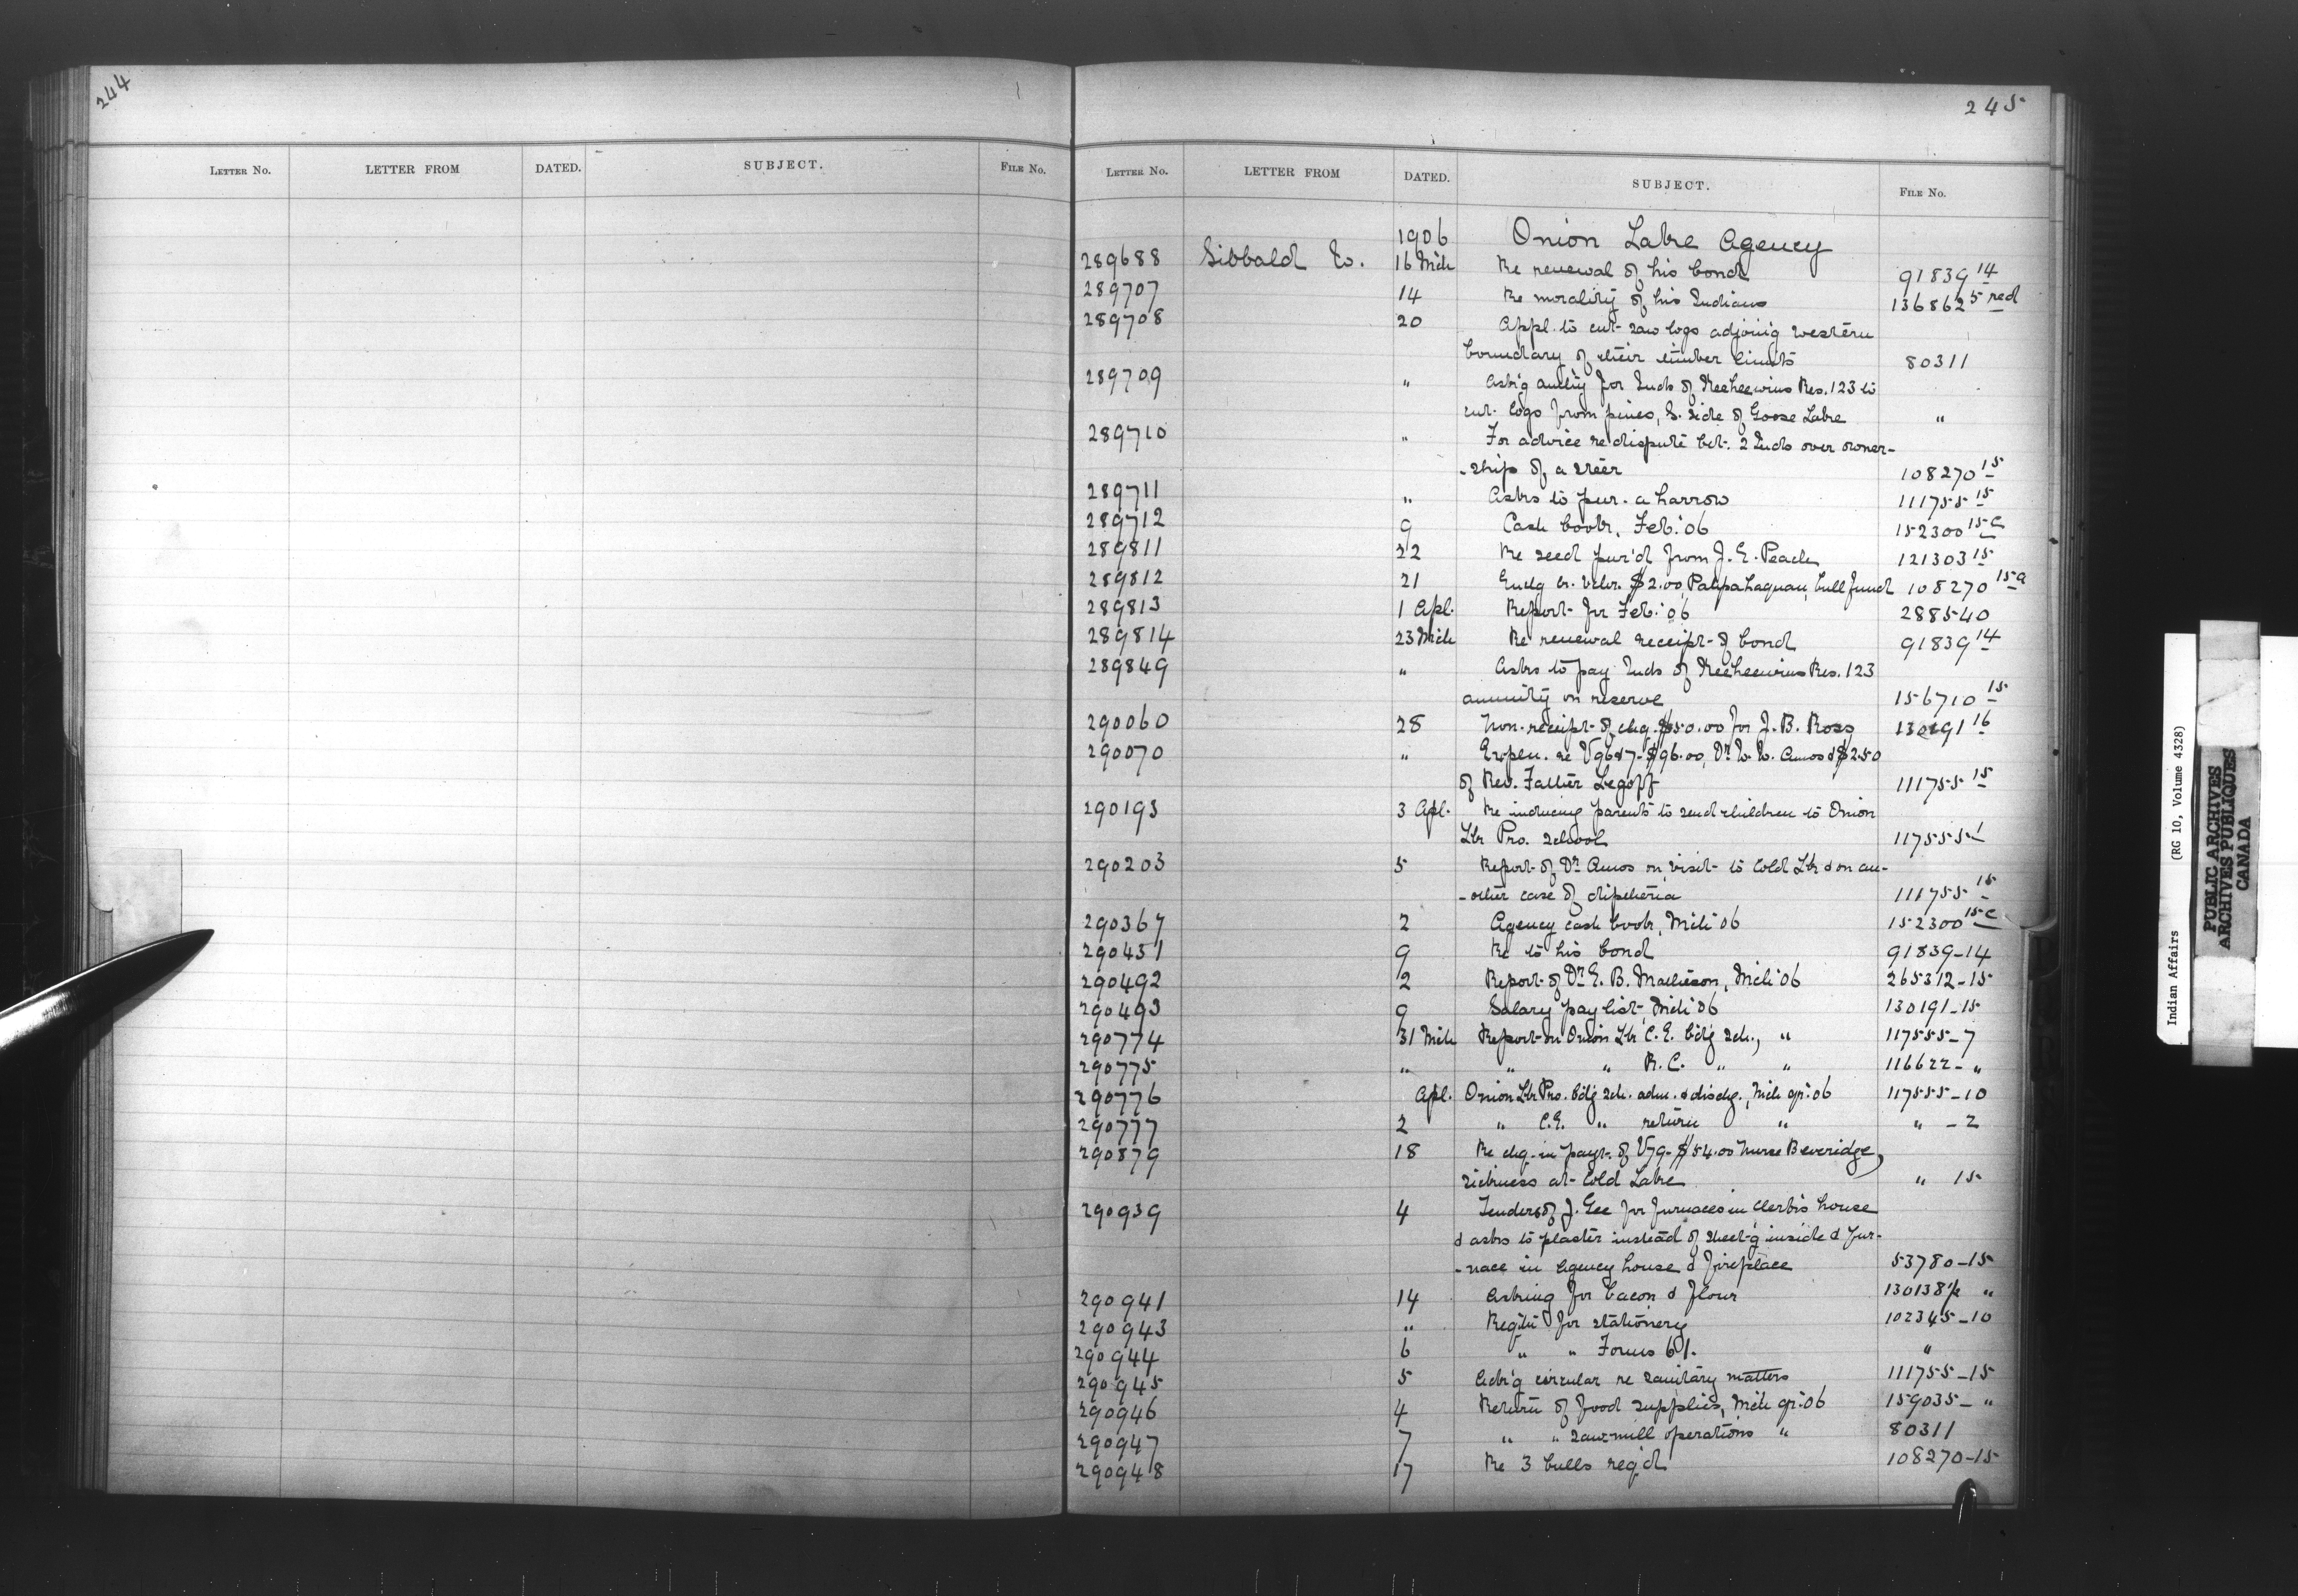 244
Letter No. LETTER FROM DATED. SUBJECT. File No.
245
Letter No. LETTER FROM DATED. SUBJECT. File No.
1906 Onion Lake Agency
289688 Sibbald W. 16 Mch Re renewal of his bond 91839 14
289707 14 Re morality of his Indians 136862 5 red
289708 20 Appl. to cut saw logs adjoin'g western
boundary of their timber limits 80311
289709 " Ask'g auth'y for Inds of Keeheewins Res. 123 to
cut logs from pines, S. side of Goose Lake "
289710 " For advice re dispute bet. 2 Inds over owner-
-ship of a steer 108270 15
289711 " Asks to pur. a harrow 111755 15
289712 9 Cash book, Feb. '06 152300 15c
289811 22 Re seed pur'd from J. E. Peach 121303 15
289812 21 Enclg dr. vchr. $2.00 bull fund 108270 15a
289813 1 Apl. Report for Feb. '06 288540
289814 23 Mch Re renewal receipt of bond 91839 14
289849 " Asks to pay Inds of Keeheewins Res. 123
annuity on reserve 156710 15
290060 28 Non-receipt of chq. $50.00 for J. B. Ross 130191 16
290070 " Explen. re V9687-$96.00, Dr W. W. Amos & $2.50
of Rev. Father Legoff 111755 15
290193 3 Apl. Re inducing parents to send children to Onion
Lk Pro. school 117555 1
290203 5 Report of Dr Amos on visit to Cold Lk & on an-
-other case of diptheria 111755 15
290367 2 Agency cash book, Mch '06 152300 15c
290431 9 Re to his bond 91839-14
290492 2 Report of Dr E. B. Matheson, Mch '06 265312-15
290493 9 Salary pay list, Mch '06 130191-15
290774 31 Mch Report on Onion Lk C.E. bdg sch., " 117555-7
290775 " " " R.C. " " 116622-"
290776 Apl. Onion Lk Pro. bdg sch. adm. & dischg., Mch qr. '06 117555-10
290777 2 " C.E. " return " " -2
290879 18 Re chq. in payt. of V79-$54.00 Nurse Beveridge,
sickness at Cold Lake " 15
290939 4 Tenders of J. Gee for furnaces in Clerk's house
& asks to plaster instead of sheet'g inside & fur-
-nace in agency house & fireplace 53780-15
290941 14 Asking for bacon & flour 130138½ "
290943 " Reqtn for stationery 102345-10
290944 6 " " Forms 61. "
290945 5 Ack'g circular re sanitary matters 111755-15
290946 4 Return of food supplies, Mch qr. '06 159035-"
290947 7 " " saw-mill operations " 80311
290948 17 Re 3 bulls req'd 108270-15
Indian Affairs (RG 10, Volume 4328)
PUBLIC ARCHIVES
ARCHIVES PUBLIQUES
CANADA